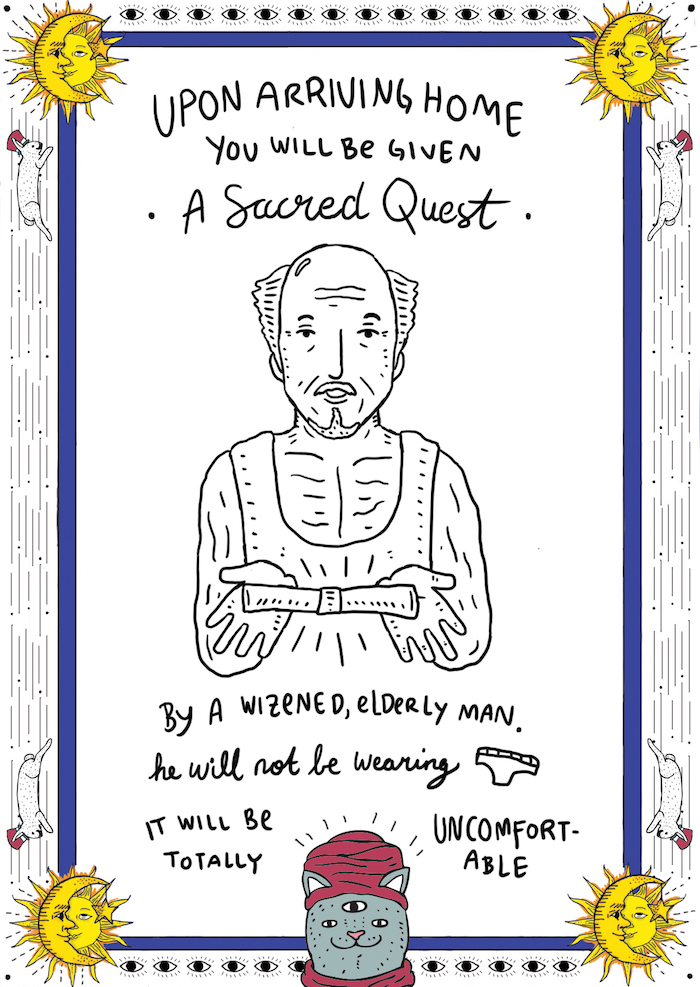 UPON ARRIVING HOME
YOU WILL Be GIVEN
. A Sacred Quest .
By A WIZENED, elDeRLY MAN.
he will not be wearing
IT WILL Be
TOTALLY
UNCOMFORT-
ABLE